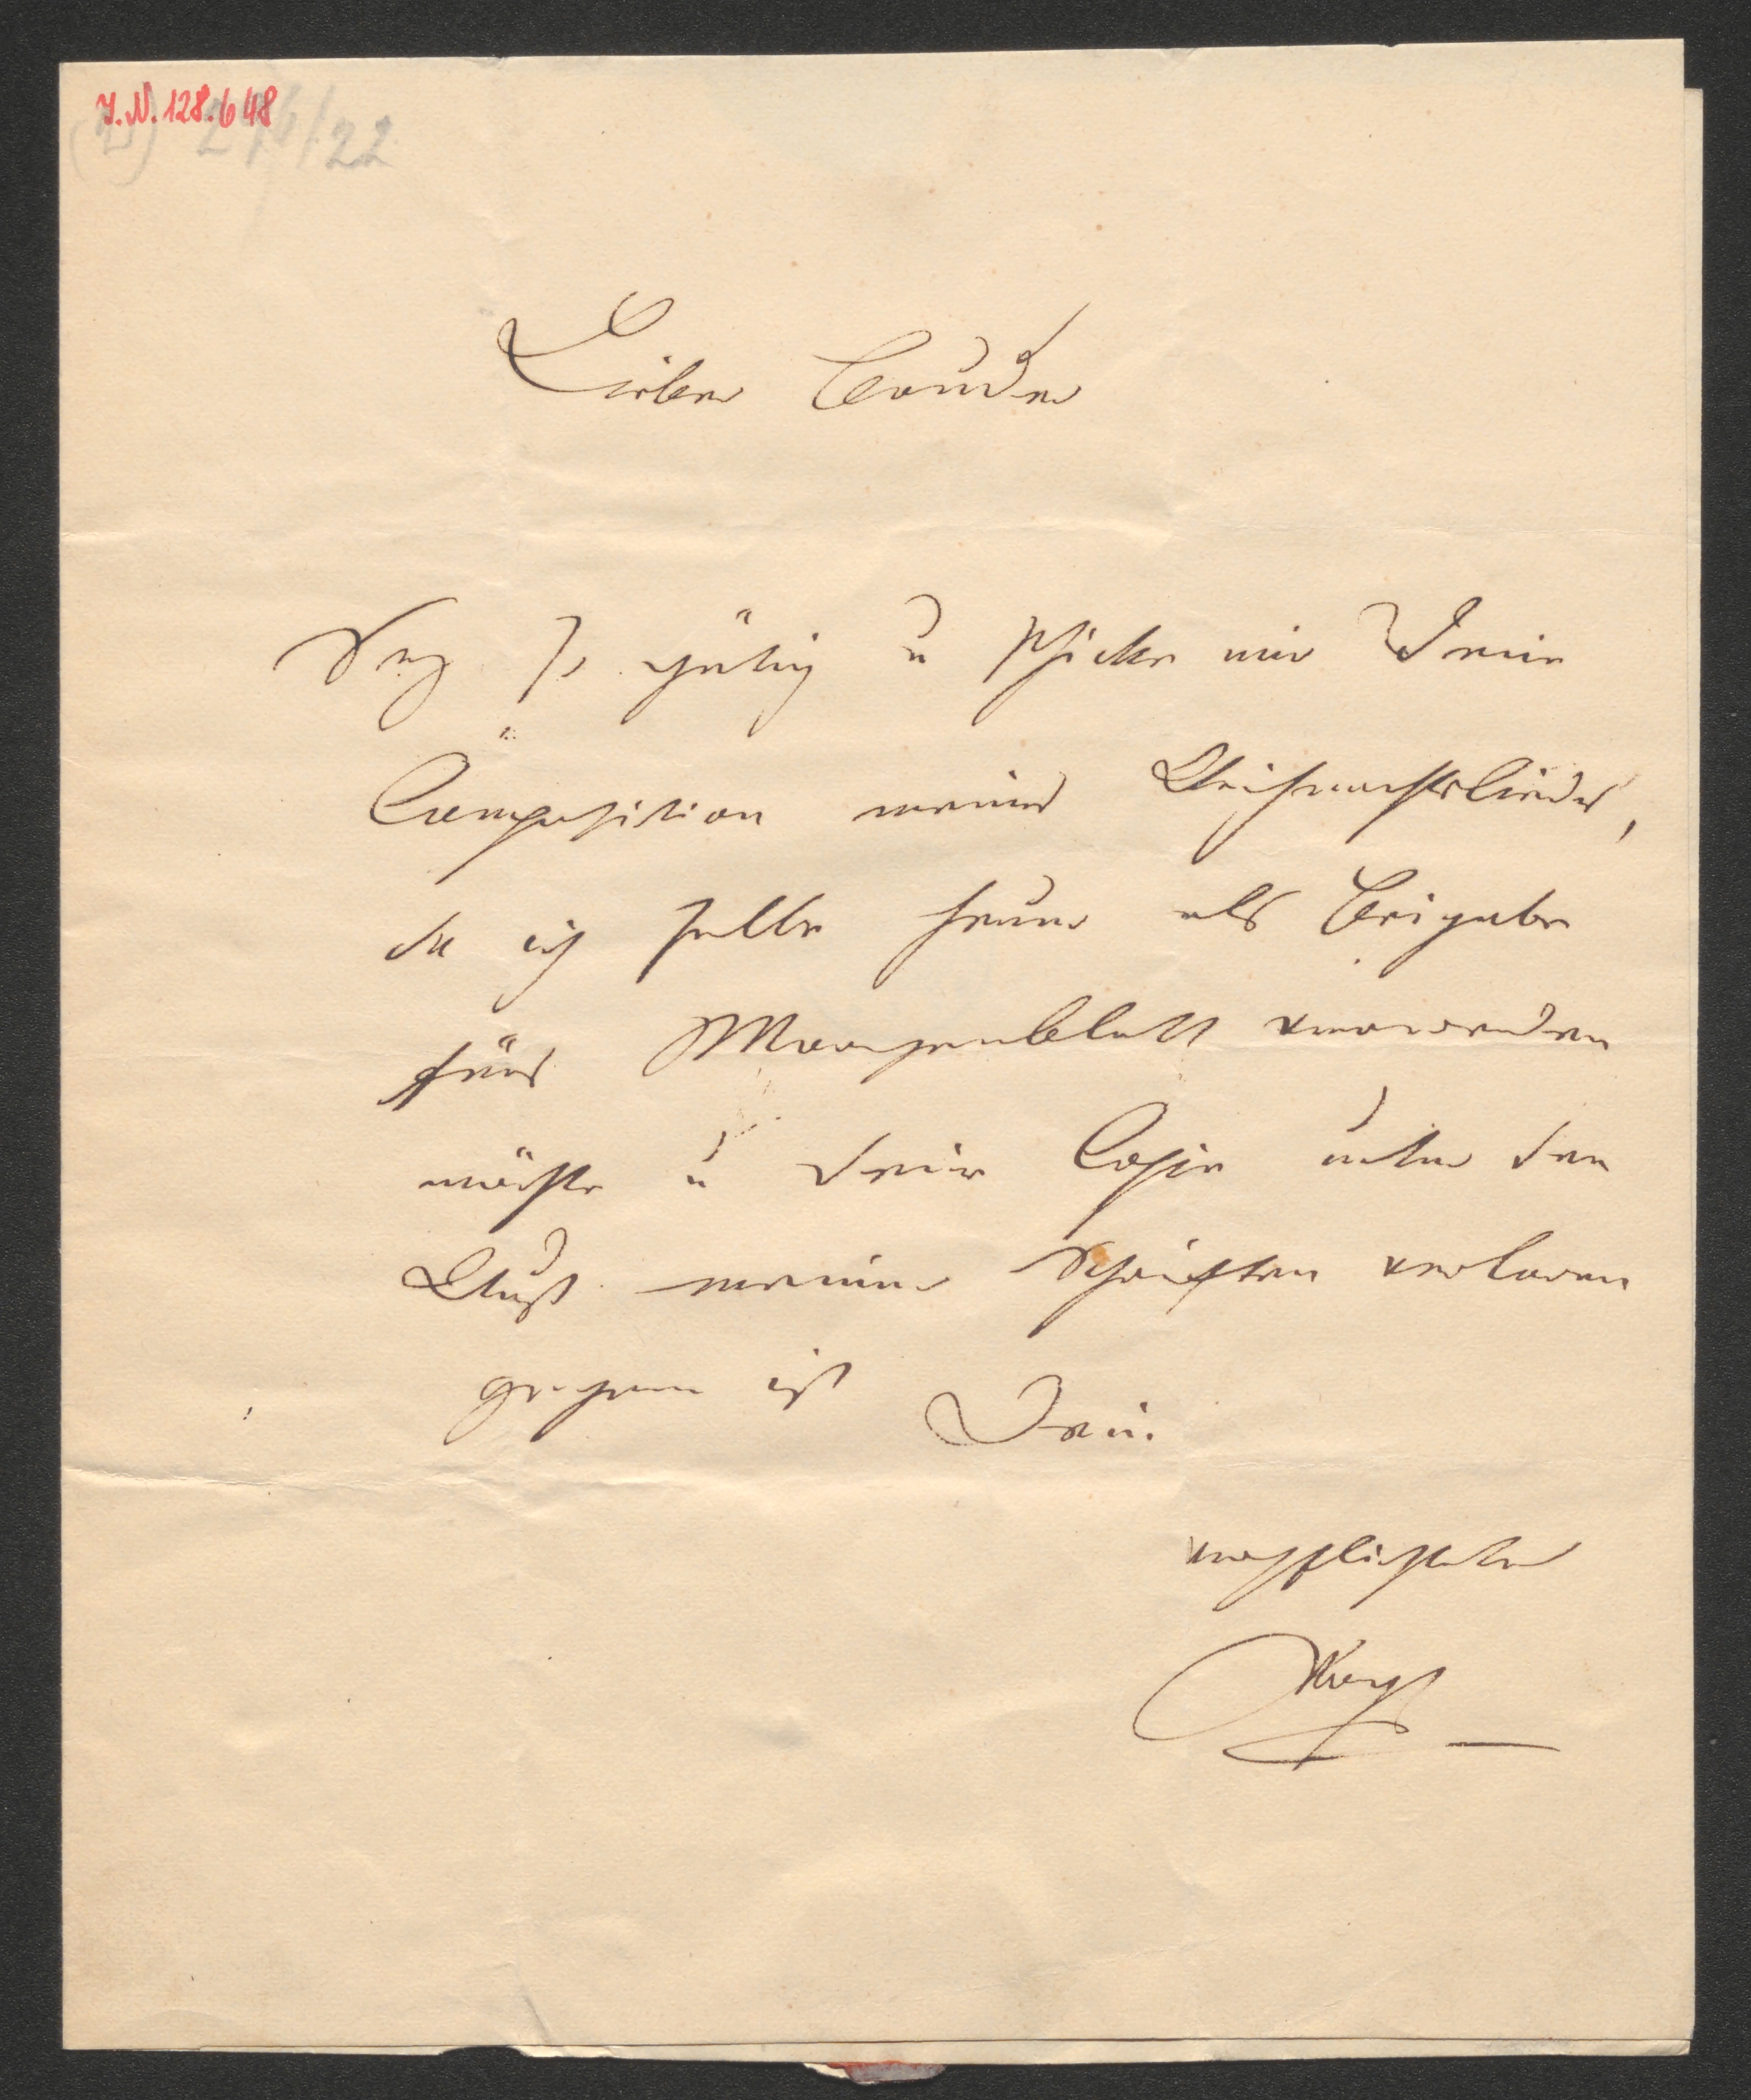 J.N. 128.648
Lieber Bruder
Sey so gütig u schicke mir Deine
Composition meines Weihnachtsliedes,
da ich selbe heuer als Beigabe
fürs Morgenblatt verwenden
möchte u Deine Copie unter dem
Wust meiner Schriften verloren
gegangen ist
Dein
verpflichteter